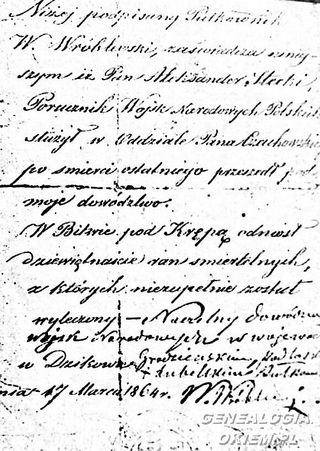 Niżej podpisany Pułkownik
W. Wróblewski, zaświadcza niniej-
szym iż Pan Aleksander
Porucznik Wojsk Narodowych Polskich
służył w Oddziale Pana Czachowski
po śmierci ostatniego przeszedł pod
moje dowództwo.
W Bitwie pod Krępą odniosł
dziewiętnaście ran śmiertelnych,
z których niezupełnie został
wyleczony – Naczelny dowódca
wojsk Narodowych w wojewo
w Dzikowie Grodzieńskim Podlas
Lubelskim Pułkow
17 Marca 1864 r. W. Wróblewski
GENEALOGIA
OKIEM.PL